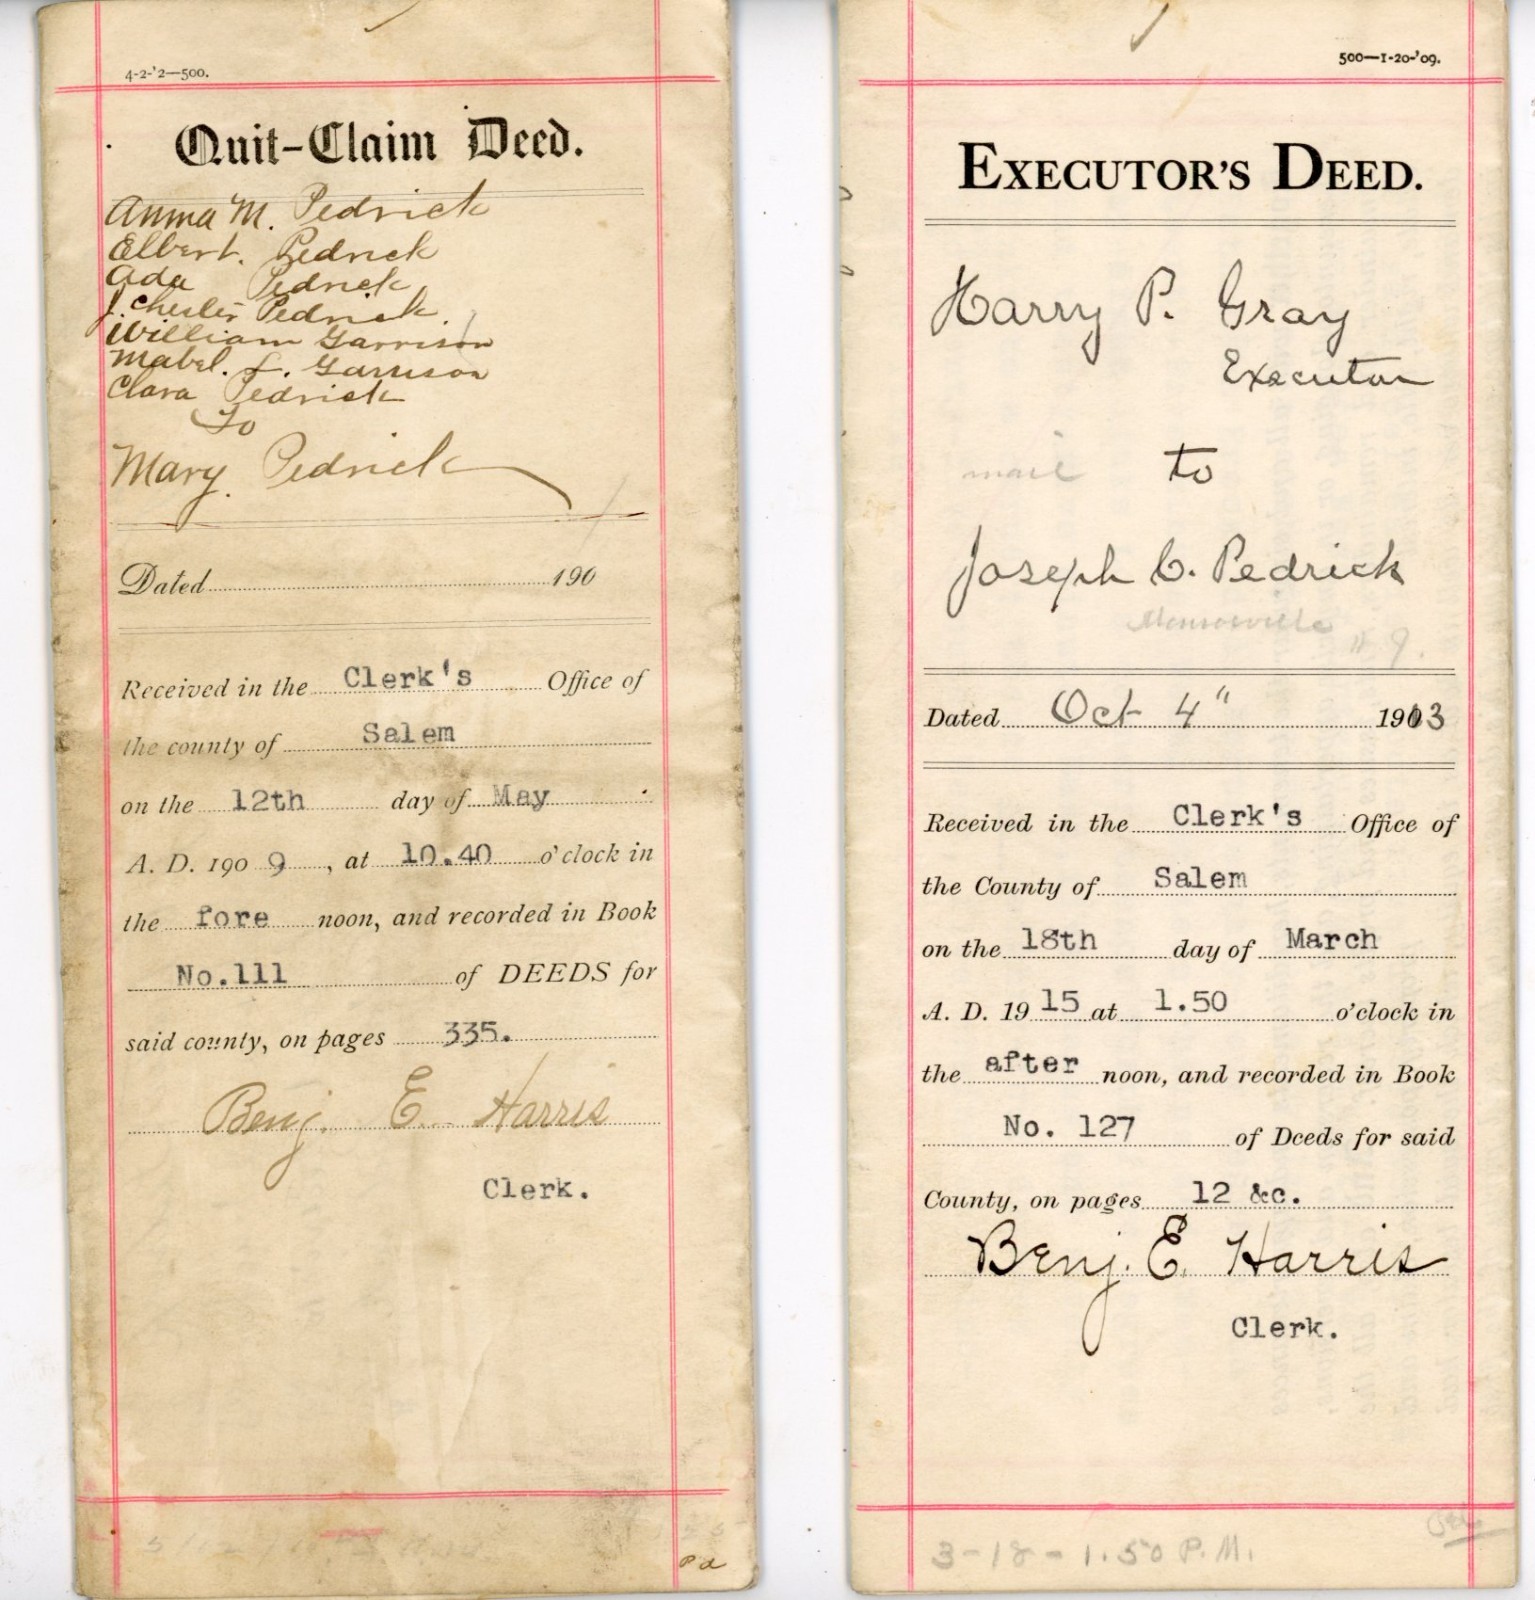 4-2-'2—500.
Quit-Claim Deed.
Anna M. Pedrick
Elbert. Pedrick
Ada Pedrick
J. Chester Pedrick.
William Garrison
Mabel. L. Garrison
Clara Pedrick
To
Mary. Pedrick
Dated 190
Received in the Clerk's Office of
the county of Salem
on the 12th day of May
A. D. 190 9, at 10.40 o'clock in
the fore noon, and recorded in Book
No.111 of DEEDS for
said county, on pages 335.
Benj. E. Harris
Clerk.
Pd
500—1-20-'09.
EXECUTOR'S DEED.
Harry P. Gray
Executor
mail to
Joseph C. Pedrick
Monroeville N. J.
Dated Oct 4" 1913
Received in the Clerk's Office of
the County of Salem
on the 18th day of March
A. D. 19 15 at 1.50 o'clock in
the after noon, and recorded in Book
No. 127 of Deeds for said
County, on pages 12 &c.
Benj. E. Harris
Clerk.
3-18-1.50 P.M.